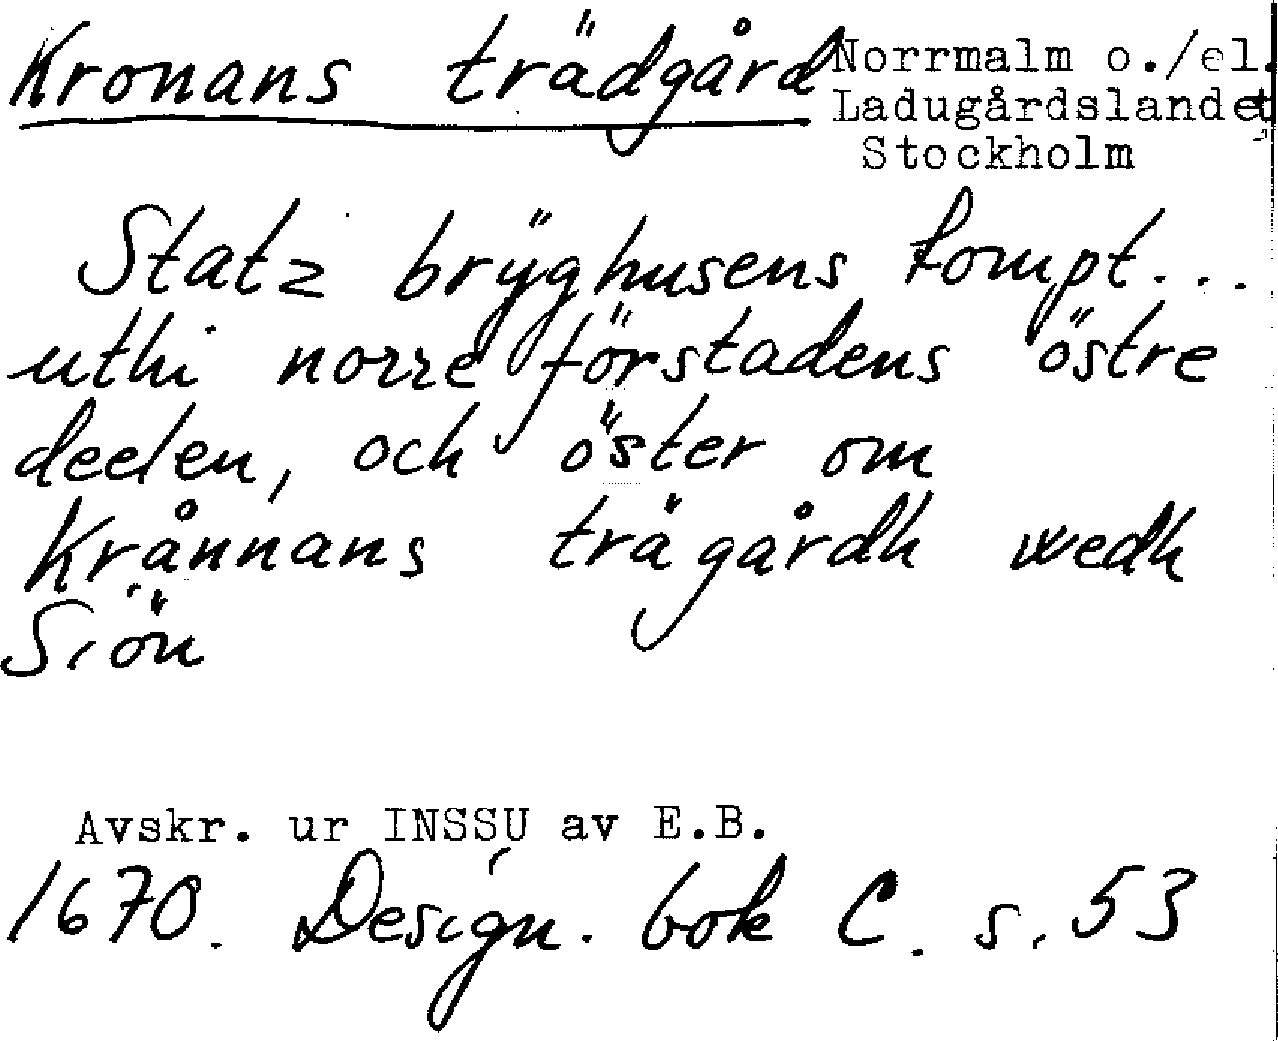 Kronans trädgård Norrmalm o./el.
Ladugårdslandet
Stockholm
Statz brÿghusens tompt...
uthi norre förstadens östre
deelen, och öster om
Krånnans trägårdh wedh
Siön
Avskr. ur INSSU av E.B.
1670. Design. bok C. s. 53